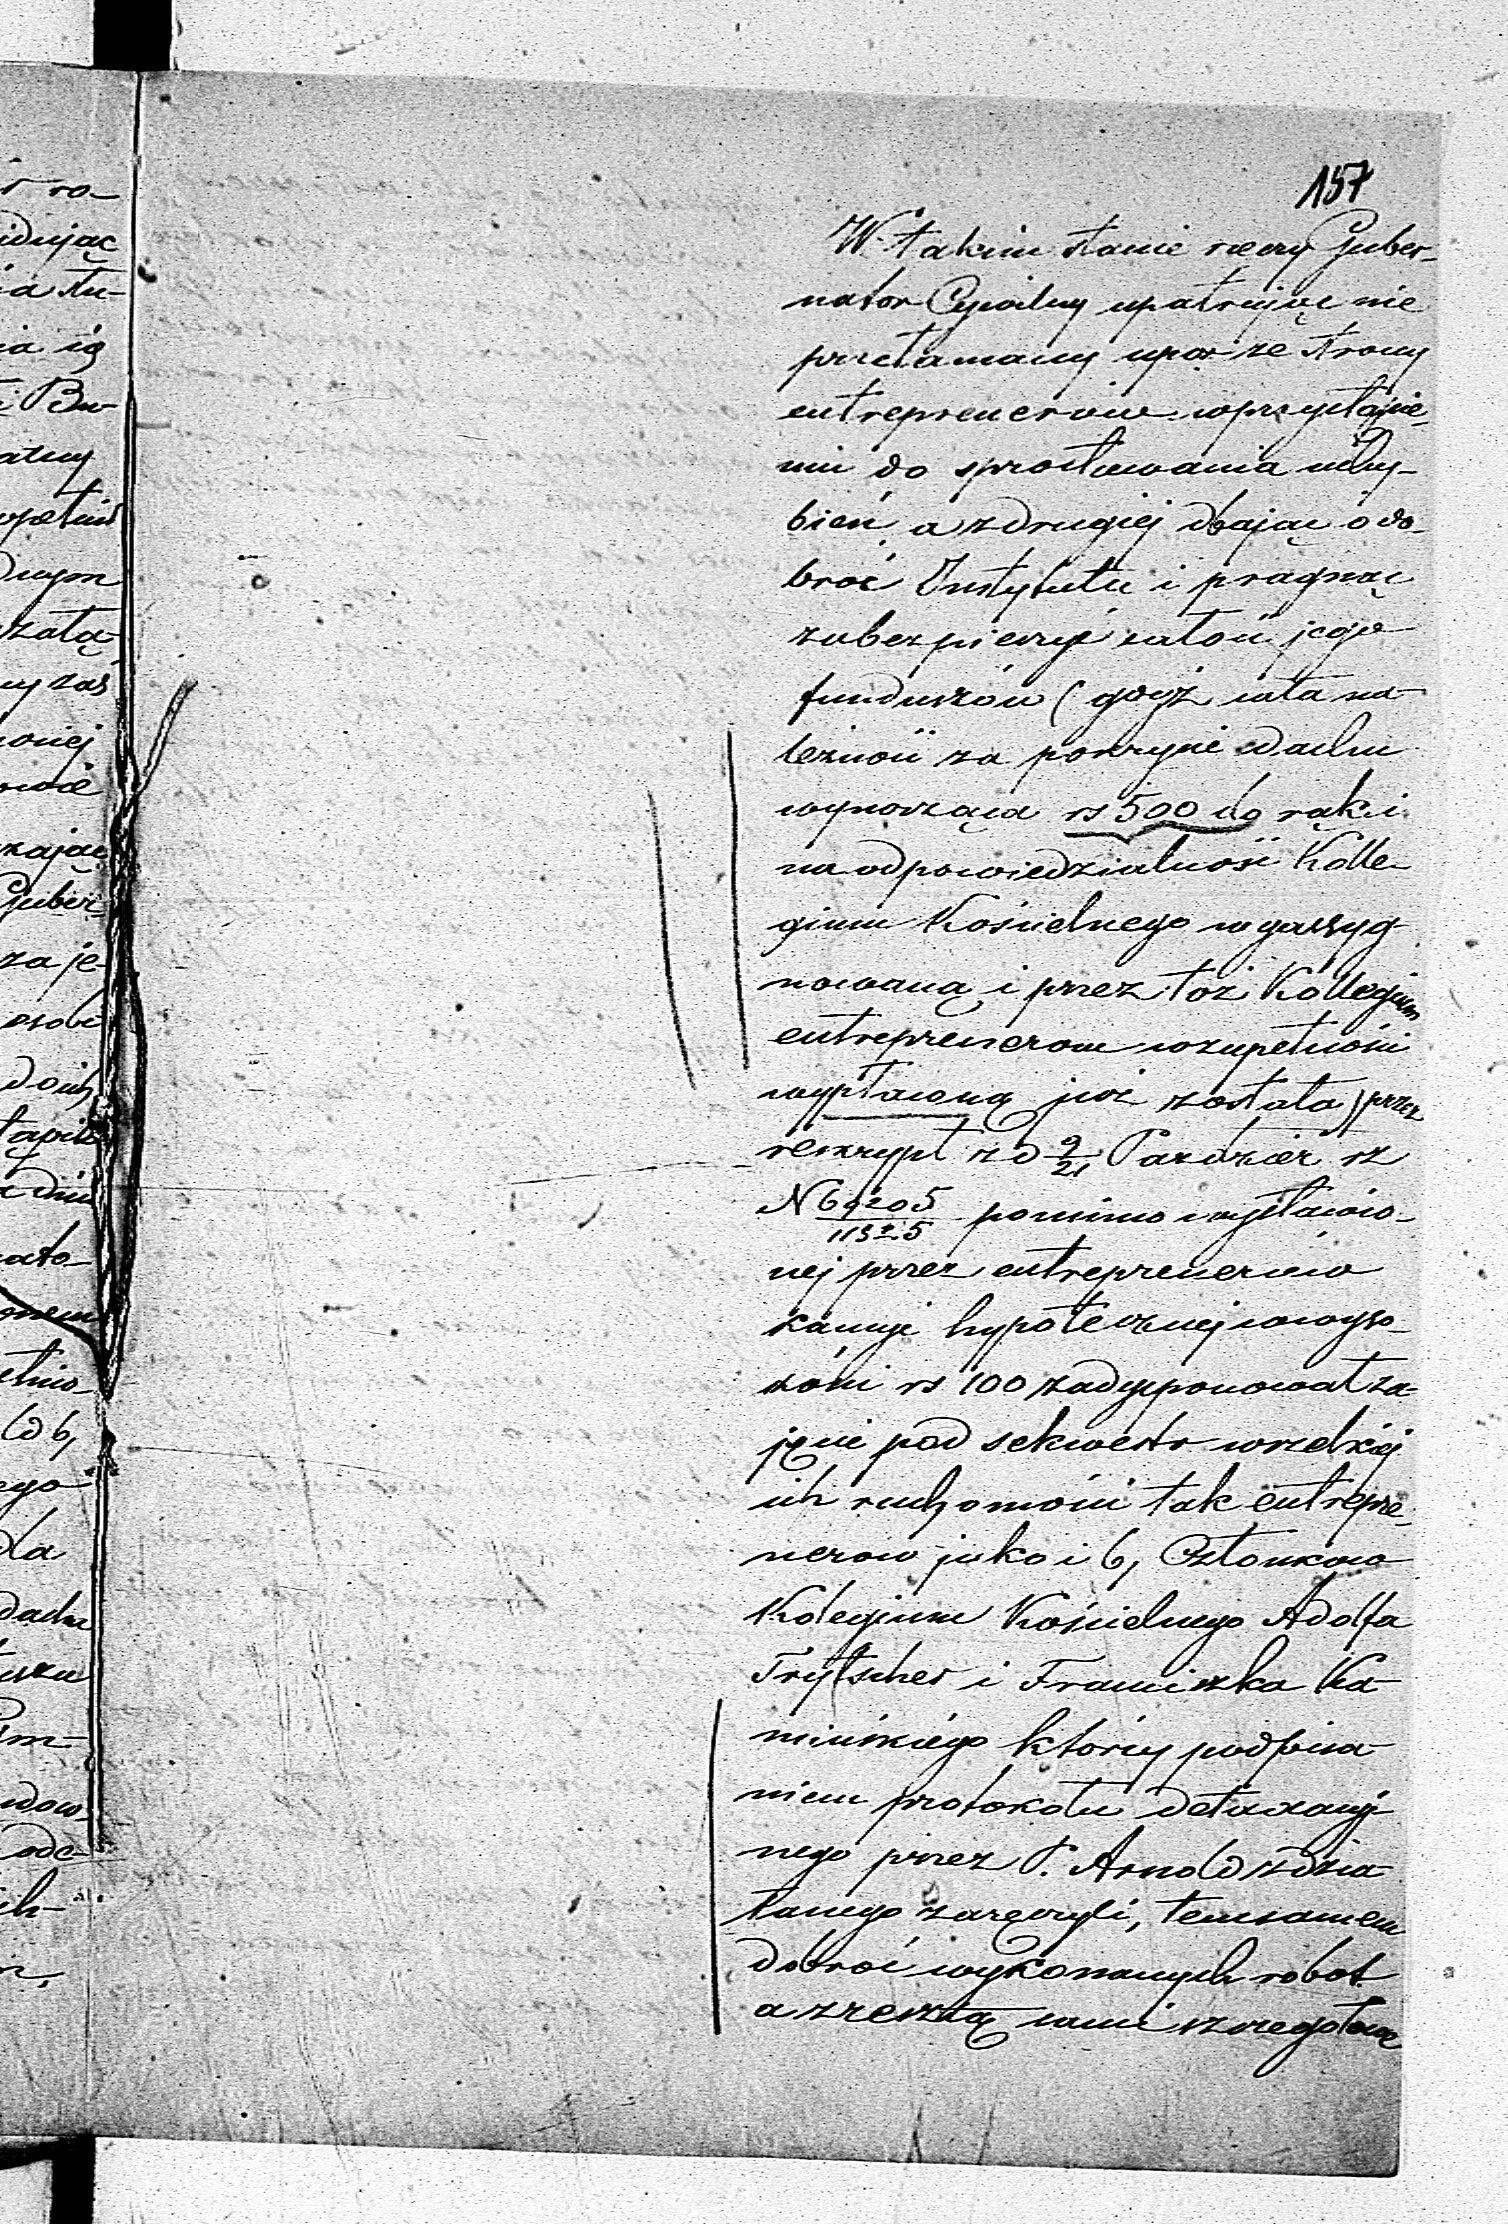 157
W takim stanie rzeczy Guber-
nator Cywilny upatrując nie
przełamany upor ze strony
entreprenerów w przystąpie-
niu do sprostowania uchy-
bień, a z drugiej dbając o do-
broć Instytutu i pragnąc
zabezpieczyć całość jego
funduszów (gdyż cała na-
leżność za pokrycie dachu
wynosząca rs 500 do rąk i
na odpowiedzialność Kolle-
gium Kościelnego wyassyg-
nowaną i przez toż Kollegium
entreprenerom w zupełności
wypłaconą już została) przez
reskrypt z d 9/21 Paździer rz
N 69205/11325 pomimo wystawio-
nej przez entreprenerów
kaucyi hypotecznej w wyso-
kości rs 100 zadysponował za-
jęcie pod sekwestr wszelkiej
ich ruchomości tak entrepre-
nerow jako i b, Członków
Kolegium Kościelnego Adolfa
Frytscher i Franciszka Ka-
mińskiego którzy podpisa-
niem protokołu detaxacyj-
nego przez P. Arnold zdzia-
łanego zaręczyli, temsamem
dobroć wykonanych robot
a zresztą sami szczegółową